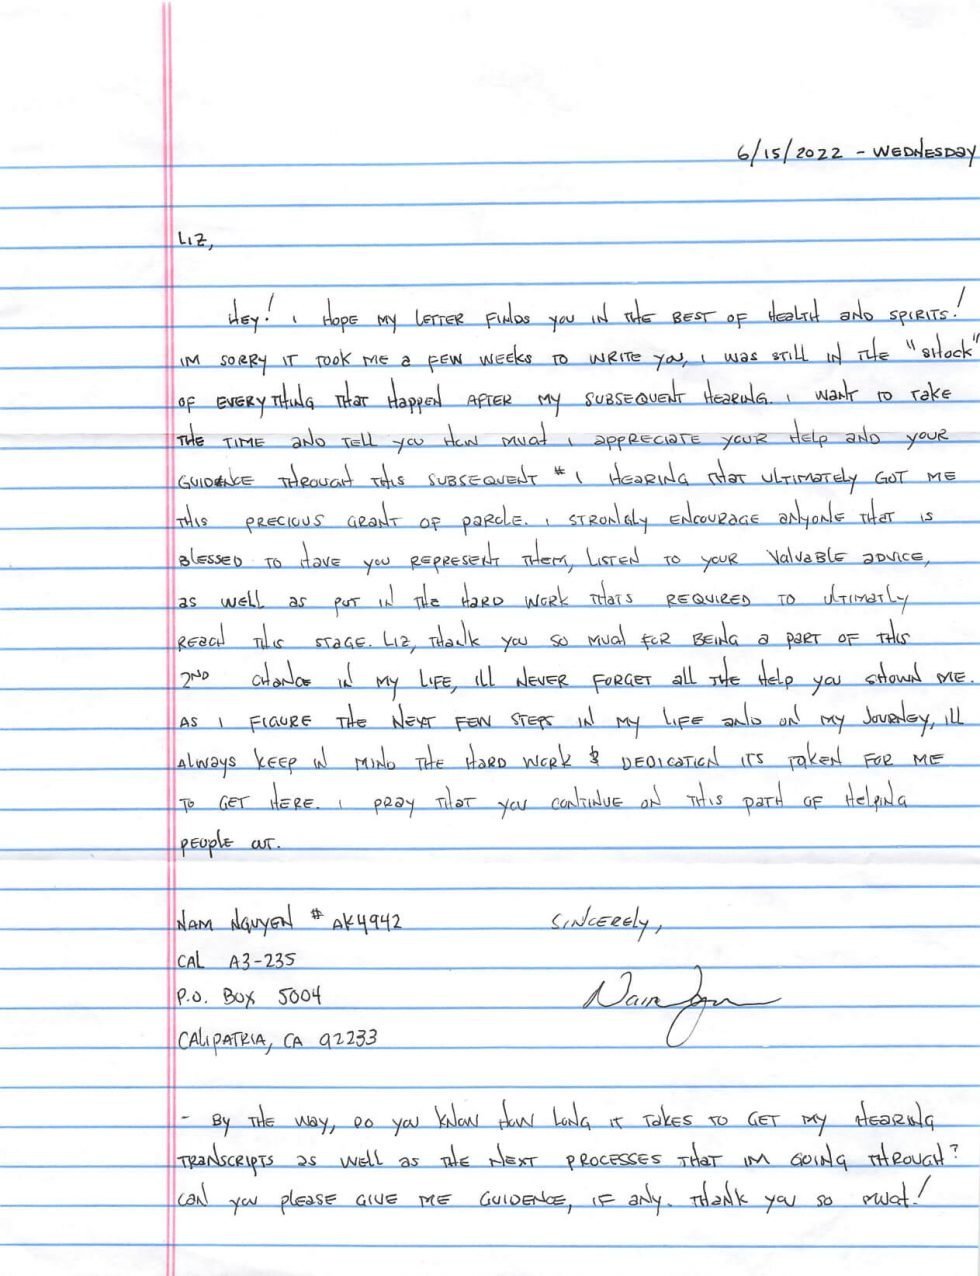 6/15/2022 - WEDNESDAY
LIZ,
HEY! I HOPE MY LETTER FINDS YOU IN THE BEST OF HEALTH AND SPIRITS!
IM SORRY IT TOOK ME A FEW WEEKS TO WRITE YOU, I WAS STILL IN THE "SHOCK"
OF EVERYTHING THAT HAPPEN AFTER MY SUBSEQUENT HEARING. I WANT TO TAKE
THE TIME AND TELL YOU HOW MUCH I APPRECIATE YOUR HELP AND YOUR
GUIDENCE THROUGH THIS SUBSEQUENT #1 HEARING THAT ULTIMATELY GOT ME
THIS PRECIOUS GRANT OF PAROLE. I STRONGLY ENCOURAGE ANYONE THAT IS
BLESSED TO HAVE YOU REPRESENT THEM, LISTEN TO YOUR VALUABLE ADVICE,
AS WELL AS PUT IN THE HARD WORK THATS REQUIRED TO ULTIMATLY
REACH THIS STAGE. LIZ, THANK YOU SO MUCH FOR BEING A PART OF THIS
2ND CHANCE IN MY LIFE, ILL NEVER FORGET ALL THE HELP YOU SHOWN ME.
AS I FIGURE THE NEXT FEW STEPS IN MY LIFE AND ON MY JOURNEY, ILL
ALWAYS KEEP IN MIND THE HARD WORK & DEDICATION ITS TAKEN FOR ME
TO GET HERE. I PRAY THAT YOU CONTINUE ON THIS PATH OF HELPING
PEOPLE OUT.
NAM NGUYEN # AK4942 SINCERELY,
CAL A3-235
P.O. BOX 5004 Nam Nguyen
CALIPATRIA, CA 92233
- BY THE WAY, DO YOU KNOW HOW LONG IT TAKES TO GET MY HEARING
TRANSCRIPTS AS WELL AS THE NEXT PROCESSES THAT IM GOING THROUGH?
CAN YOU PLEASE GIVE ME GUIDENCE, IF ANY. THANK YOU SO MUCH!